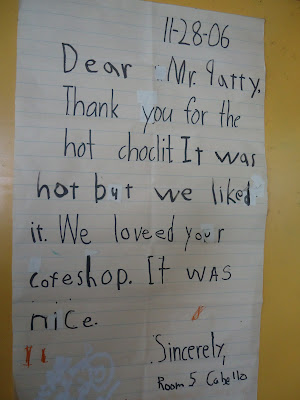 11-28-06
Dear Mr. Patty.
Thank you for the
hot choclit It was
hot but we liked
it. We loveed your
cofeshop. It was
nice.
Sincerely,
Room 5 Cabello